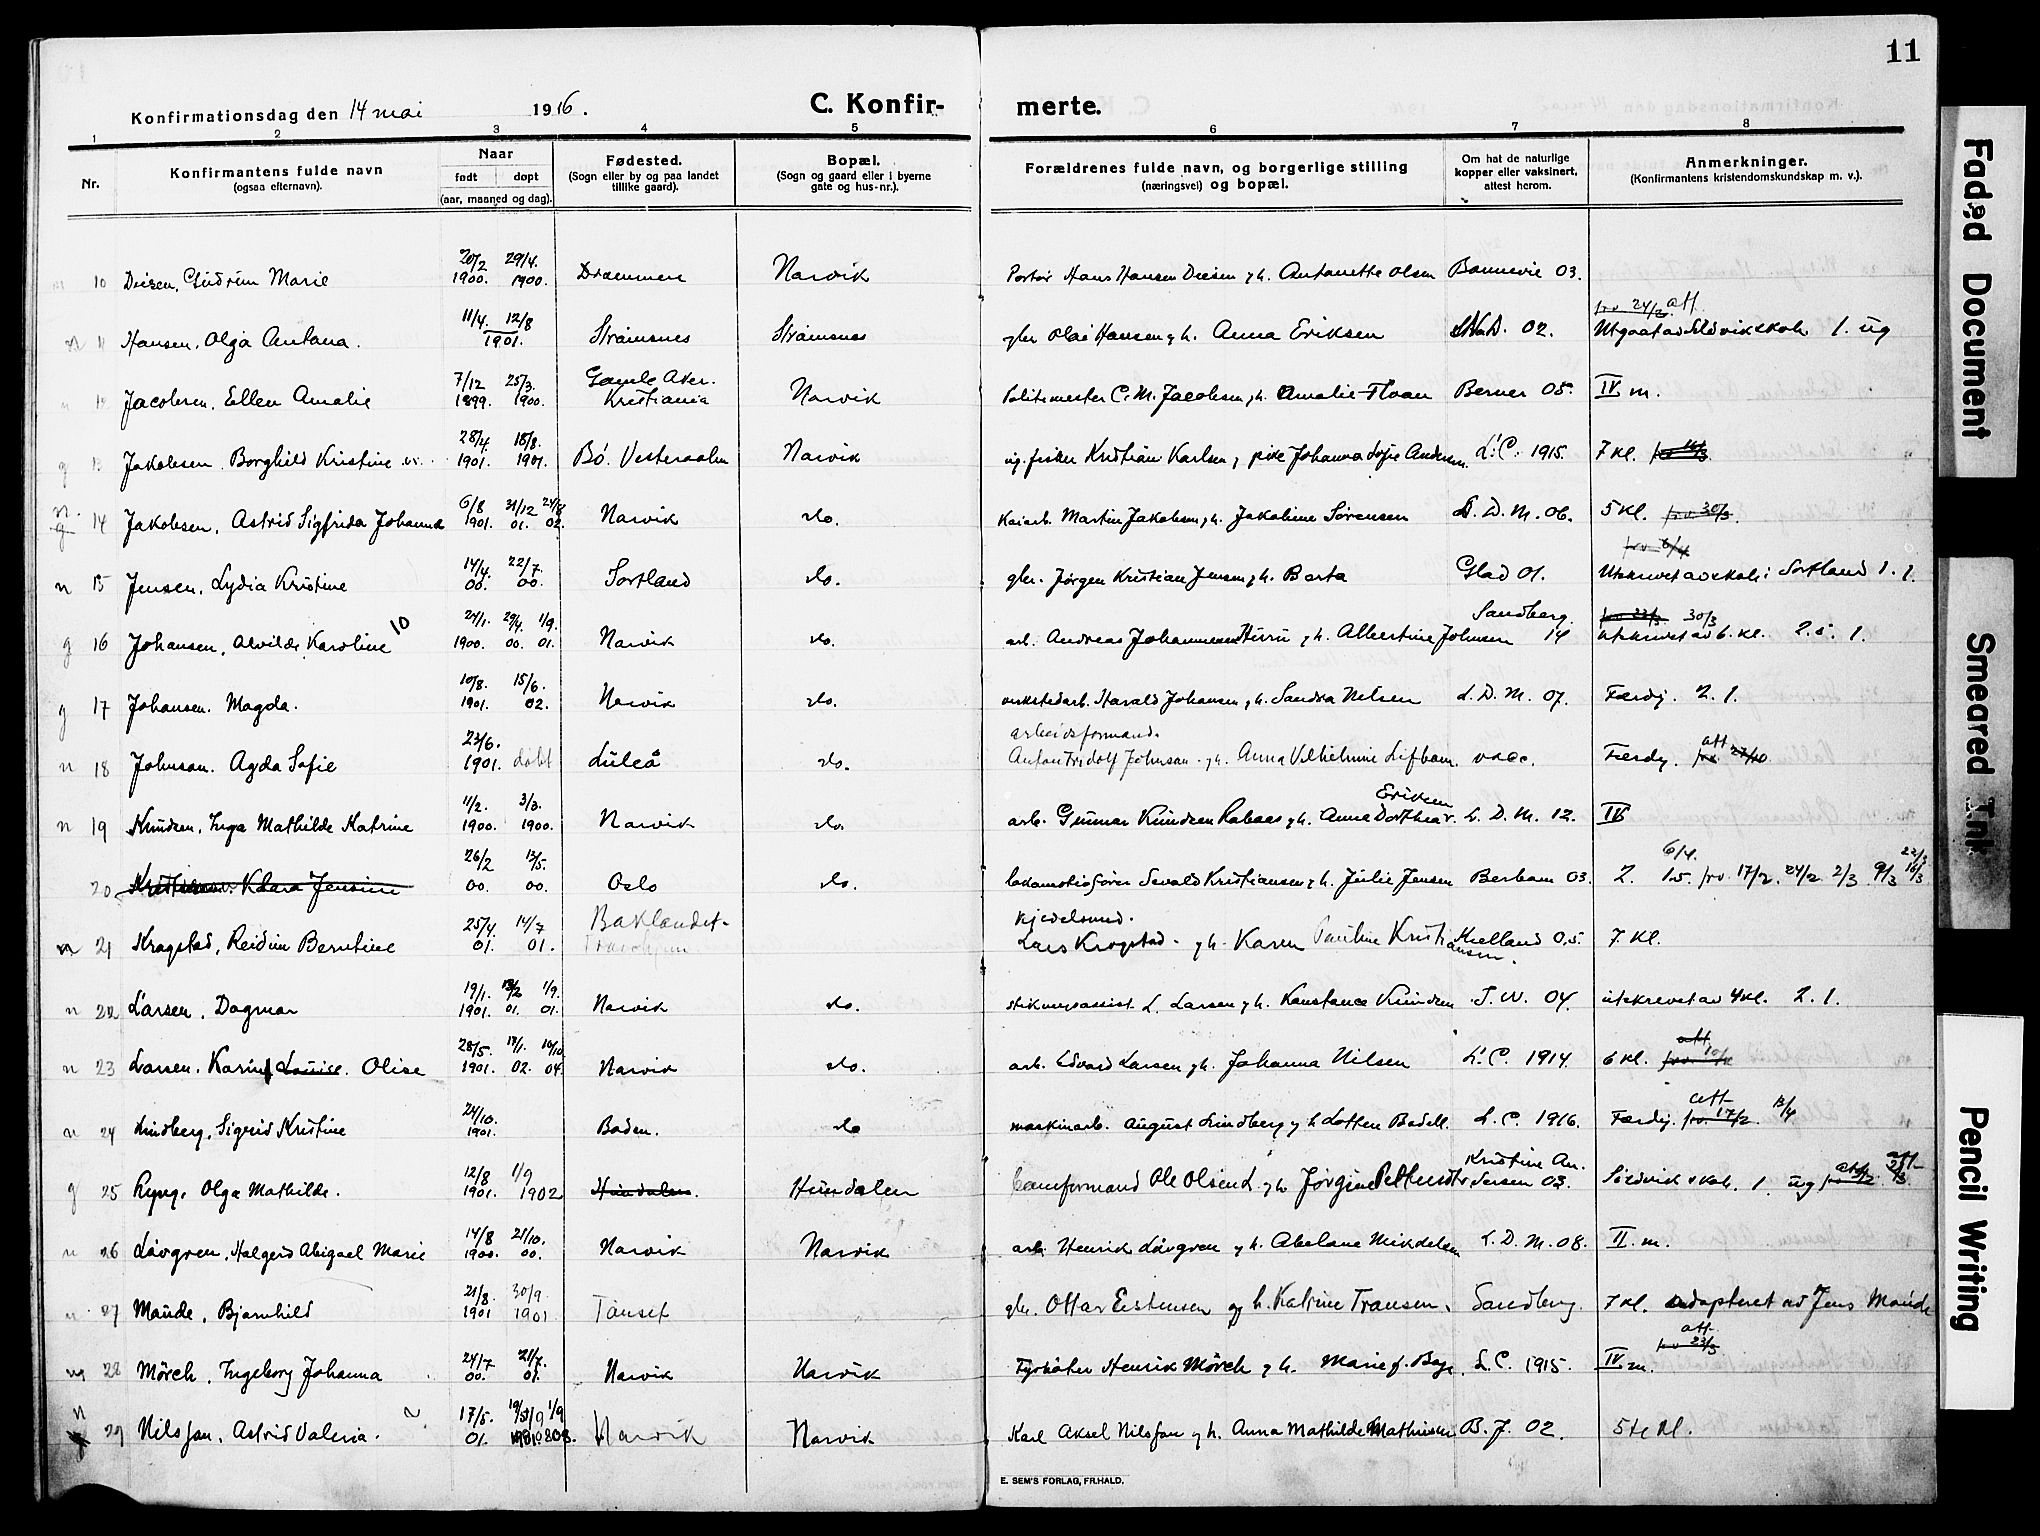 11
Konfirmationsdag den 14 mai 1916.
C. Konfir- merte.
1 2 3 4 5 6 7 8
Nr.
Konfirmantens fulde navn
(ogsaa efternavn).
Naar
født døpt
(aar, maaned og dag).
Fødested.
(Sogn eller by og paa landet
tillike gaard).
Bopæl.
(Sogn og gaard eller i byerne
gate og hus-nr.).
Forældrenes fulde navn, og borgerlige stilling
(næringsvei) og bopæl.
Om hat de naturlige
kopper eller vaksinert,
attest herom.
Anmerkninger.
(Konfirmantens kristendomskundskap m. v.).
20/2 29/4.
n 10 Diesen, Gudrun Marie 1900. 1900. Drammen Narvik Portør Hans Hansen Diesen g. h. Antonette Olsen Bonnevie 03.
11/4. 12/8 prv 24/2. att.
n 11 Hansen, Olga Antana. 1901. Strømsnes Strømsnes gbr Olai Hansen g. h. Anna Eriksen 02. Utgaat av Sildvik skole 1. ug
7/12 25/3. Gamle Aker.
n 12 Jacobsen, Ellen Amalie 1899. 1900. Kristiania Narvik Politimester C. M. Jacobsen g. h. Amalie Floan Berner 05. IV m.
28/4 18/8.
g 13 Jakobsen Borghild Kristine 1901. 1901. Bø. Vesteraalen Narvik ug. fisker Kristian Karlsen, pike Johanna Sofie Andersen. L. C. 1915. 7 kl.
n. 6/8 31/12 24/8
g 14 Jakobsen, Astrid Sigfrida Johanna 1901. 01. 02. Narvik do. Kaiarb. Martin Jakobsen g. h. Jakobine Sørensen L. D. M. 06. 5 kl. prv. 30/3.
14/4. 22/7. prv 6/4
n 15 Jensen, Lydia Kristine 00. 00. Sortland do. gbr. Jørgen Kristian Jensen g. h. Berta Glad 01. Utskrevet av skole i Sortland 1. 1.
24/1. 29/4. 1/9. Sandberg. prv 23/3. 30/3
g 16 Johansen, Alvilde Karoline 10 1900. 00. 01. Narvik do. arb. Andreas Johannesen g. h. Albertine Johnsen 14 utskrevet av 6. kl. 2.5. 1.
10/8. 15/6.
g 17 Johansen. Magda. 1901. 02. Narvik do. verkstedarb. Harald Johansen g. h. Sandra Nilsen L. D. M. 07. Færdig. 2. 1.
23/6. arbeidsformand. att
n 18 Johnson. Agda Sofie 1901. døbt Luleå do. Anton Fridolf Johnson g. h. Anna Vilhelmine Lifbom. vacc. Færdig. prv. 27/10
11/2. 3/3. Eriksen
n 19 Knudsen, Inga Mathilde Katrine 1900. 1900. Narvik do. arb. Gunnar Knudsen Rabaas g. h. Anna Dorthea L. D. M. 12. IV
26/2 13/5. 6/4. 22/3
20 Kristiansen. Klara Jensine 00. 00. Oslo do. lokomotivfører Sevald Kristiansen g. h. Julie Jensen Berbom 03. 2. 1.5. prv. 17/2. 24/2 2/3 9/3 16/3
25/4. 14/7 Baklandet- Kjedelsmed.
n 21 Kragstad, Reidun Berntine 01. 01. Trondhjem Lars Krogstad - g. h. Karen Pauline Kristiansen. Kielland 05. 7. kl.
19/1. 13/2 1/9.
n 22 Larsen, Dagmar 1901. 01. 01. Narvik do. stikningsassist. L. Larsen g. h. Konstance Knudsen J. W. 04. utskrevet av 4 kl. 2. 1.
28/5. 18/1. 16/10. att
n 23 Larsen. Karin Louise. Olise 1901. 02. 04. Narvik do. arb. Edvard Larsen g. h. Johanna Nilsen L. C. 1914. 6 kl. prv.
24/10. att-
n 24 Lindberg, Sigrid Kristine 1901. Boden. do maskinarb. August Lindberg g. h Lotten Bodell L. C. 1916. Færdig. prv. 17/2. 13/4
12/8 1/9 Kristine An. att-
g 25 Ryng, Olga Mathilde. 1901. 1902 Hundalen. Hundalen baneformand Ole Olsen L. g. h. Jørgine dersen 03. Sildvik skole. 1. ug
14/8 21/10.
n 26 Løvgren, Halgerd Abigael Marie 1900. 00. Narvik Narvik arb. Henrik Løvgren g. h. Abelone Mikkelsen L. D. M. 08. II. m.
21/8. 30/9.
n. 27 Maude, Bjarnhild 1901 1901 Tønset gbr. Ottar Eistensen g. h. Katrine Transen. Sandberg. 7 kl. adopteret ved Jens Maude
24/7 21/7. att- prv 23/3
ng 28 Mörch, Ingeborg Johanna 00. 01. Narvik Narvik Fyrbøter Henrik Mörch g. h. Marie f. Boge L. C. 1915. IV m.
n 17/5.
29 Nilsson, Astrid Valeria. 01. Narvik Narvik Karl Aksel Nilsson g. h. Anna Mathilde Mathisen B. J. 02. 5te kl.
E. SEM'S FORLAG, FR.HALD.
Faded Document
Smeared Ink
Pencil Writing